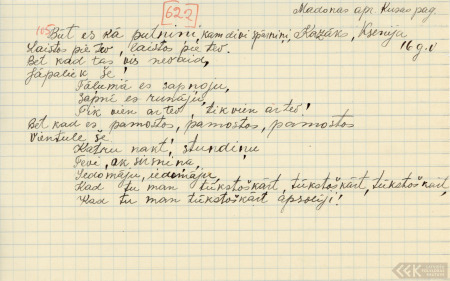 622
Madonas apr. Kusas pag.
105 But es kā putniņi, kam divi spārniņi, Kazāks, Ksenija
Laistos pie tev, laistos pie tev. 16 g.v
Bet kad tas vis nevaid,
Jāpaliek še!
Tālumā es sapņoju,
Sapnī es runāju,
Tik vien ar tev, tik vien ar tev!
Bet kad es pamostos, pamostos, pamostos
Vientule še
Katru nakt', stundiņu
Tevi, ak sirmiņa,
Iedomāju, iedomāju,
Kad tu man tūkstoškārt, tūkstoškārt, tūkstoškārt,
Kad tu man tūkstoškārt apsolīji!